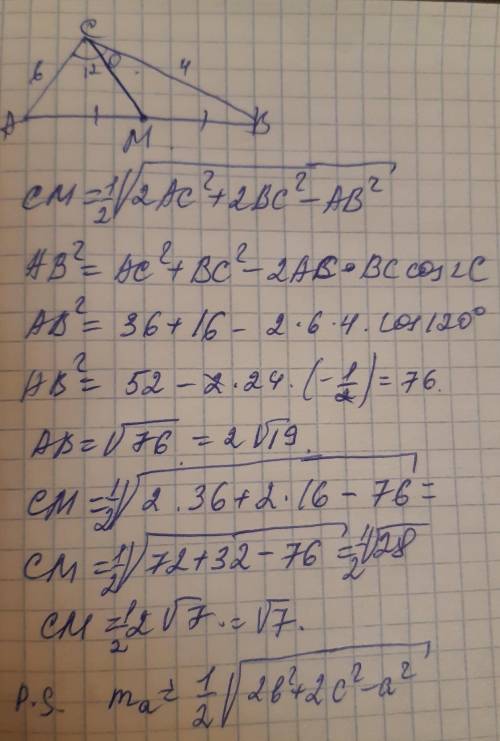 C
6 120 4
A M B
CM = 1/2 √(2AC² + 2BC² - AB²)
AB² = AC² + BC² - 2AC • BC cos∠C
AB² = 36 + 16 - 2 · 6 · 4 · cos120°
AB² = 52 - 2 · 24 · (-1/2) = 76.
AB = √76 = 2√19.
CM = 1/2 √(2 · 36 + 2 · 16 - 76) =
CM = 1/2 √(72 + 32 - 76) = 1/2 √28
CM = 1/2 2√7 · = √7.
P.S. mₐ = 1/2 √(2b² + 2c² - a²)